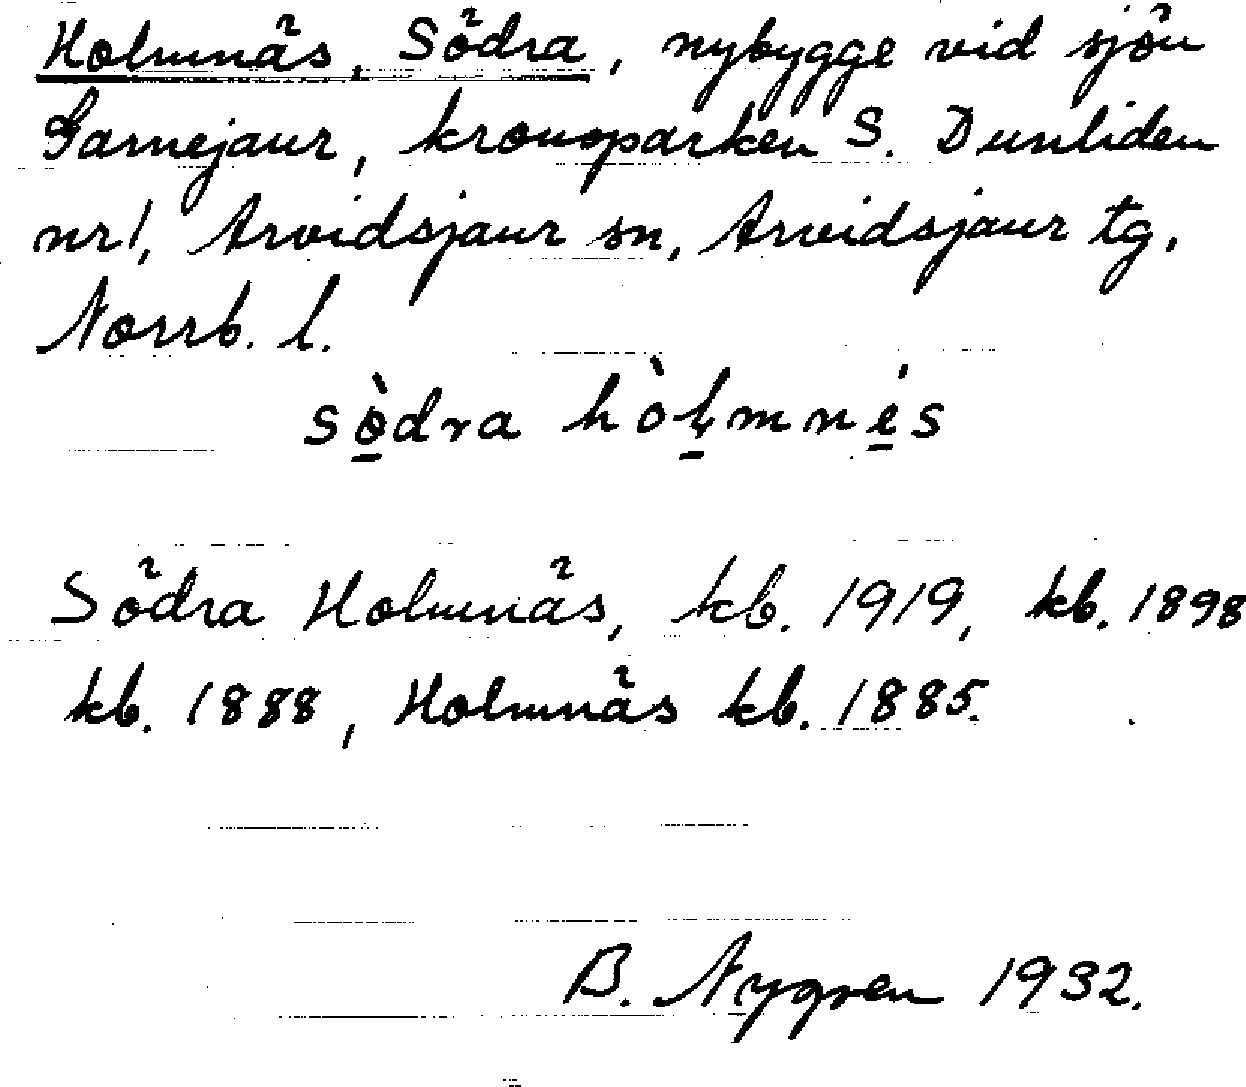 Holmnäs, Södra, nybygge vid sjön
Garnejaur, kronoparken S. Dunliden
nr 1, Arvidsjaur sn, Arvidsjaur tg,
Norrb. l.
sö̀dra hòl̥mnés
Södra Holmnäs, kb. 1919, kb. 1898
kb. 1888, Holmnäs kb. 1885.
B. Nygren 1932.